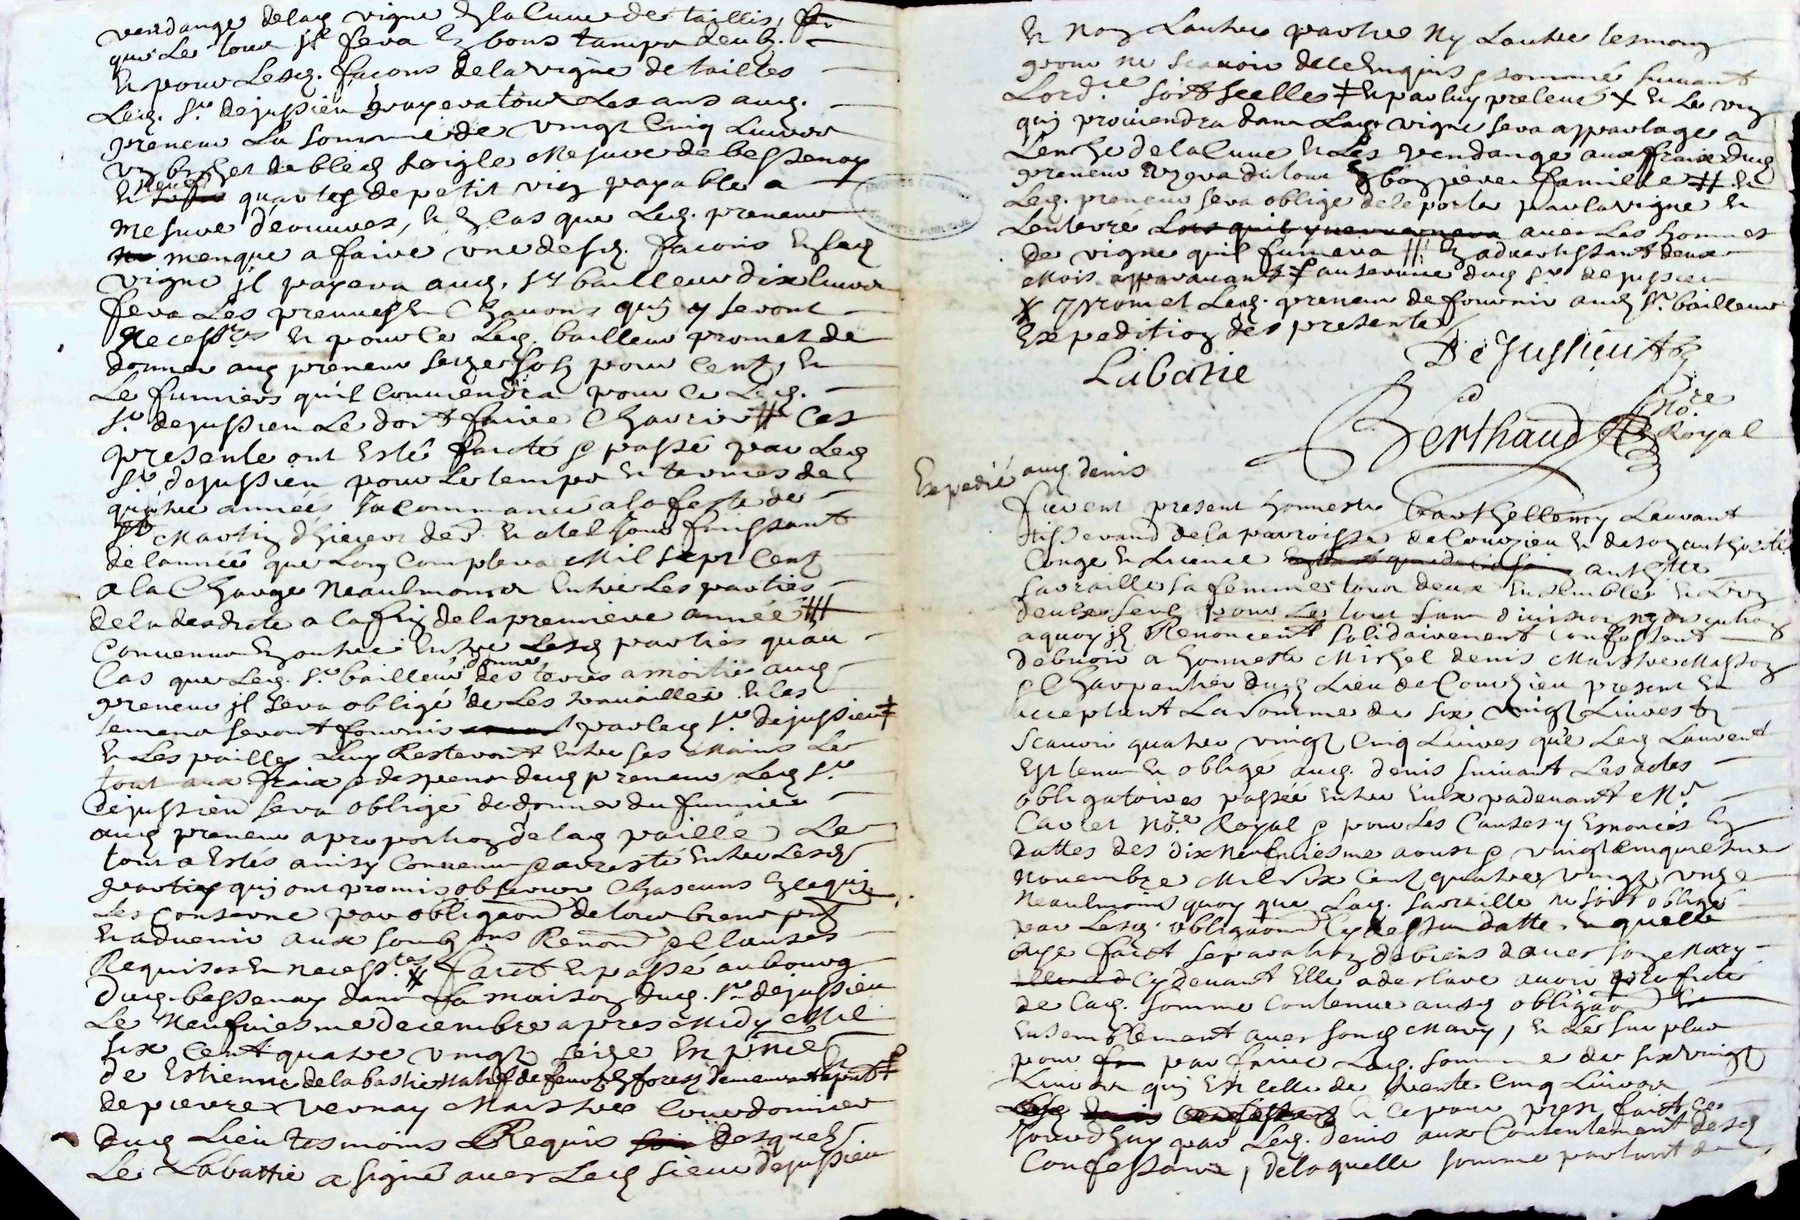 vendange de lad vigne & la Cuve de taillis,
que Le tout jl fera En bons tamps deub.
En pour Lesd. facons de la vigne de tailles
Led. Sr. dejussieu payera tous Les ans aud.
preneur La somme de vingt Cinq Livres
un bichet de bled soigle Mesure de bessenay
En neuf quartes de petit vin payable a
Mesure d'éouvres, Et En Cas que Led. preneur
menque a faire une desd. facons En lad
vigne jl payera aud. Sr bailleur dix livres
fera Les preuues En Chauons quj y seront
Necessres En pour Ce Led. bailleur promet de
donner aud preneur seize solz pour Cent, En
Le fumiers qu'il Conviendra pour Ce Led.
Sr. dejussieu Le doit faire Charrier # Ces
presente ont Esté faicte & passé par Led
Sr dejussieu pour Le temps En termes de
quatre année ja Commancé a la feste de
St Martin d'hiever der En a tel jour finissant
de l'année que Lon Comptera Mil sept Cent
a la Charge Neaulmoingz Entre Les parties
de la desdicte a la fin de la premiere année ###
Convenu En outre Entre Lesd parties quau
Cas que Led. Sr. bailleur donne des terres a moitié aud
preneur jl sera obligé de Les travailler En les
semens seront fournis par led Sr dejussieu ‡
En Les pailles Luy Resteront Entre ses Mains Le
tout aux fraix & despens dud preneur Led Sr
dejussieu sera obligé de donner du fumier
aud preneur a proportion de lad paille, Le
tout a Estés ainsy Convenu & arresté Entre Lesd
parties quj ont promis observer Chascuns En ce qui
Les Conserne par obligaon de tous biens pnt
En advenir aux soubzons Renon & Clauses
Requises En necessres X faict En passé au bourg
dud. bessenay dans La maison dud. Sr. dejussieu
Le Neufviesme decembre apres Midy Mil
six Cent quatre vingt seize En pnce
de Estienne de la bastie natif de feurs En forest demeurant
de pierre Vernay Maistre Courdonnier
dud Lieu tesmoins Requis desquels
Le Labattie a signé avec Led sieur dejussieu
En Non Lautre partie Ny Lautre tesmoing
pour ne scavoir de ce Enquis & sommé suivant
Lordce soit scelle ‡ En par luy preleué X En Le vin
quj proviendra dans Lad vigne sera appartagé a
Lenche de la Cuve En Les vendange aux fraix dud
preneur
Led. preneur sera obligé de le porter par la vigne En
Lenterré avec Les hommes
de vigne qu'il fumera ### En advertissant deux
Mois apparavant ‡ au service dud Sr dejussieu
X Promet Led. preneur de fournir aud Sr. bailleur
Expedition des presente
DeJussieu
Labatie
Berthaud Nore Royal
Expedié aud. denis
furent present honneste Barthellemy Laurant
tisserand de la parroisse de Courzieu En de son authorité
Congé En Licence anthoinette
savraille sa femme tous deux Ensembles En Lun
deulx seul pour Le tout sans division ny discution
a quoy jls Renoncent solidairement Confessent
debvoir a honneste Michel denis Maistre Masson
& Charpentier dud Lieu de Courzieu present En
acceptant La somme de six vingt Livres &
scavoir quatre vingt Cinq Livres que Led Laurent
Est tenu En obligé aud. denis suivant Les actes
obligatoires passée Entre Eulx padevant Mr.
Carlet Nore Royal & pour Les Causes y Enoncés En
dattes des dix Neufviesme aoust & vingt Cinquiesme
novembre Mil six Cent quatre vingt unze
Neaulmoins quoy que Lad. savraille ne soit obligé
par Lesd. obligaons Cy dessus datte,
aye faict separation de biens d'avec son Mary
Cy devant Elle a declaré avoir proficté
de lad. somme Contenue ausd obligaon
Ensemblement avec sond Mary, En Le surplus
pour par faire Lad. somme de six vingt
Livres quj Est Celle de trante Cinq Livres
En Ce pour prest faict ce
jourdhuy par Led. denis aux Contentement desd
Confessans, de laquelle somme partant de